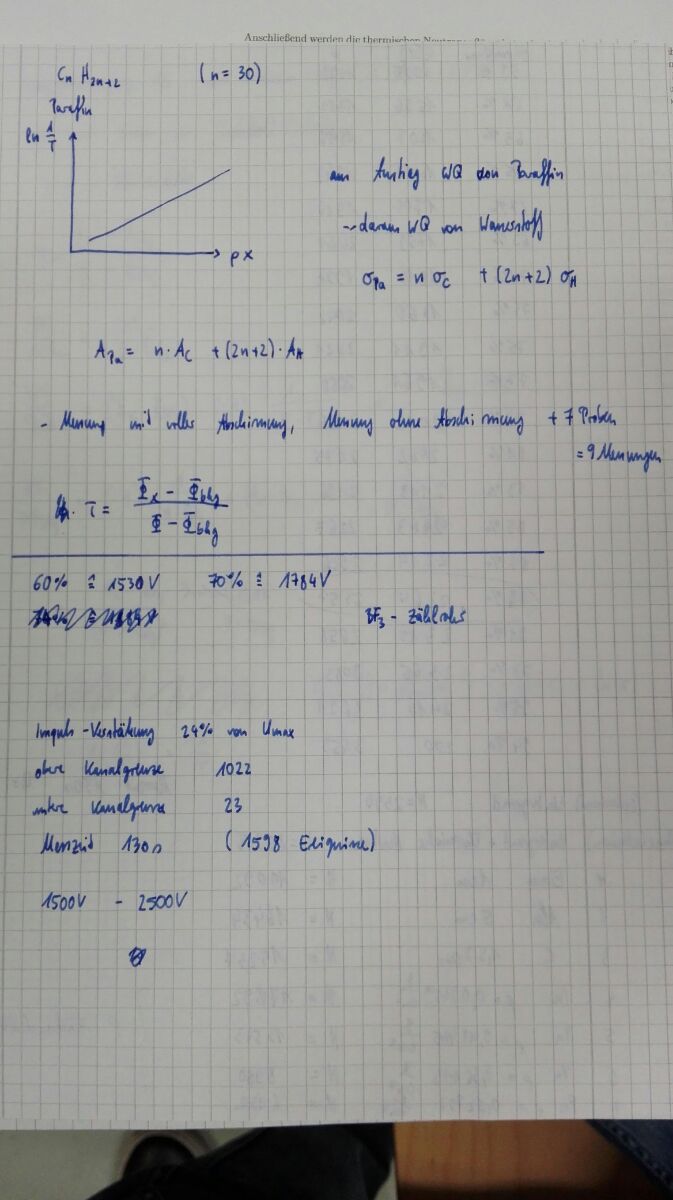 Anschließend werden die thermischen
CnH2n+2 (n = 30)
Paraffin
ln 1/T
ρx
aus Anstieg WQ von Paraffin
→ daraus WQ von Wasserstoff
σPa = n σC + (2n+2) σH
APa = n·AC + (2n+2)·AH
- Messung mit voller Abschirmung, Messung ohne Abschirmung + 7 Proben
= 9 Messungen
T = (Φx - Φbkg) / (Φ - Φbkg)
60% ≙ 1530V 70% ≙ 1784V
BF3 - Zählrohr
Impuls-Verstärkung 24% von Umax
obere Kanalgrenze 1022
untere Kanalgrenze 23
Messzeit 130s (1598 Ereignisse)
1500V - 2500V